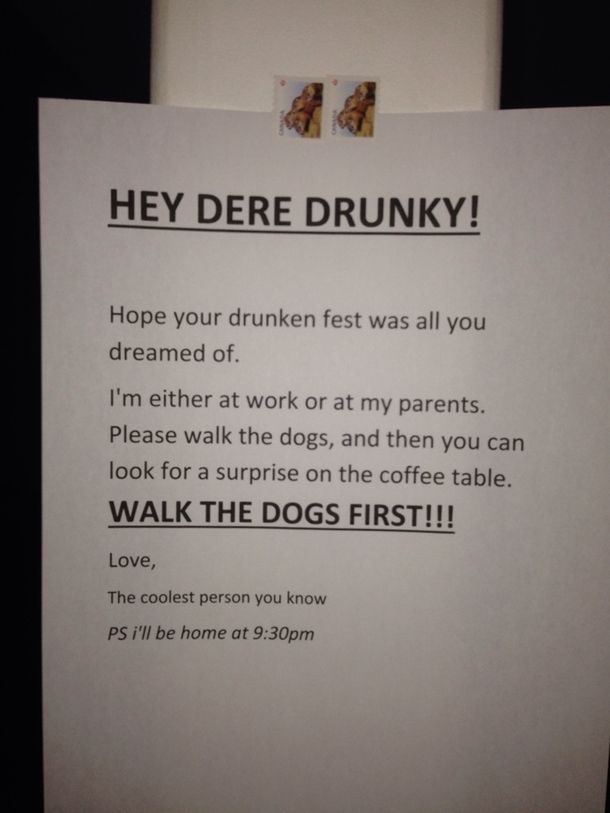 CANADA CANADA
HEY DERE DRUNKY!
Hope your drunken fest was all you
dreamed of.
I'm either at work or at my parents.
Please walk the dogs, and then you can
look for a surprise on the coffee table.
WALK THE DOGS FIRST!!!
Love,
The coolest person you know
PS i'll be home at 9:30pm